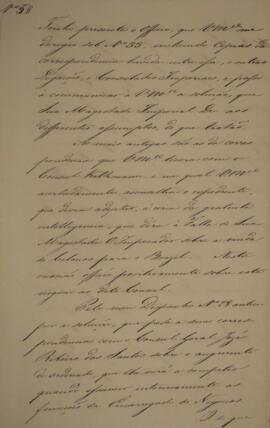 Nº 58
Tenho presente o Officio, que V Mce me
dirigio sob Nº 55, incluindo Copias da
correspondencia havida entre essa, e outras
Legações, e Consulados Imperiaes, e passo
a communicar a V Mce a solução, que
Sua Magestade Imperial Deu aos
differentes assumptos, de que tratão.
As mais antigas são as da corres
pondencia que V Mce teve com o
Consul
acertadamente, aconselha o expediente,
que devia adoptar, á cerca da
intelligencia, que deu á Falla de Sua
Magestade O Imperador sobre a vinda
de Colonos para o Brazil. Nesta
occasião officio positivamente sobre este
negocio ao dito Consul.
Pelo meu Despacho Nº 28
a solução, que pede a sua corres
pondencia com o Consul Geral José
Ribeiro dos Santos sobre o augmento
de ordenado, que
quando exercer interinamente as
funcções de Encarregado de Negocios
O de que